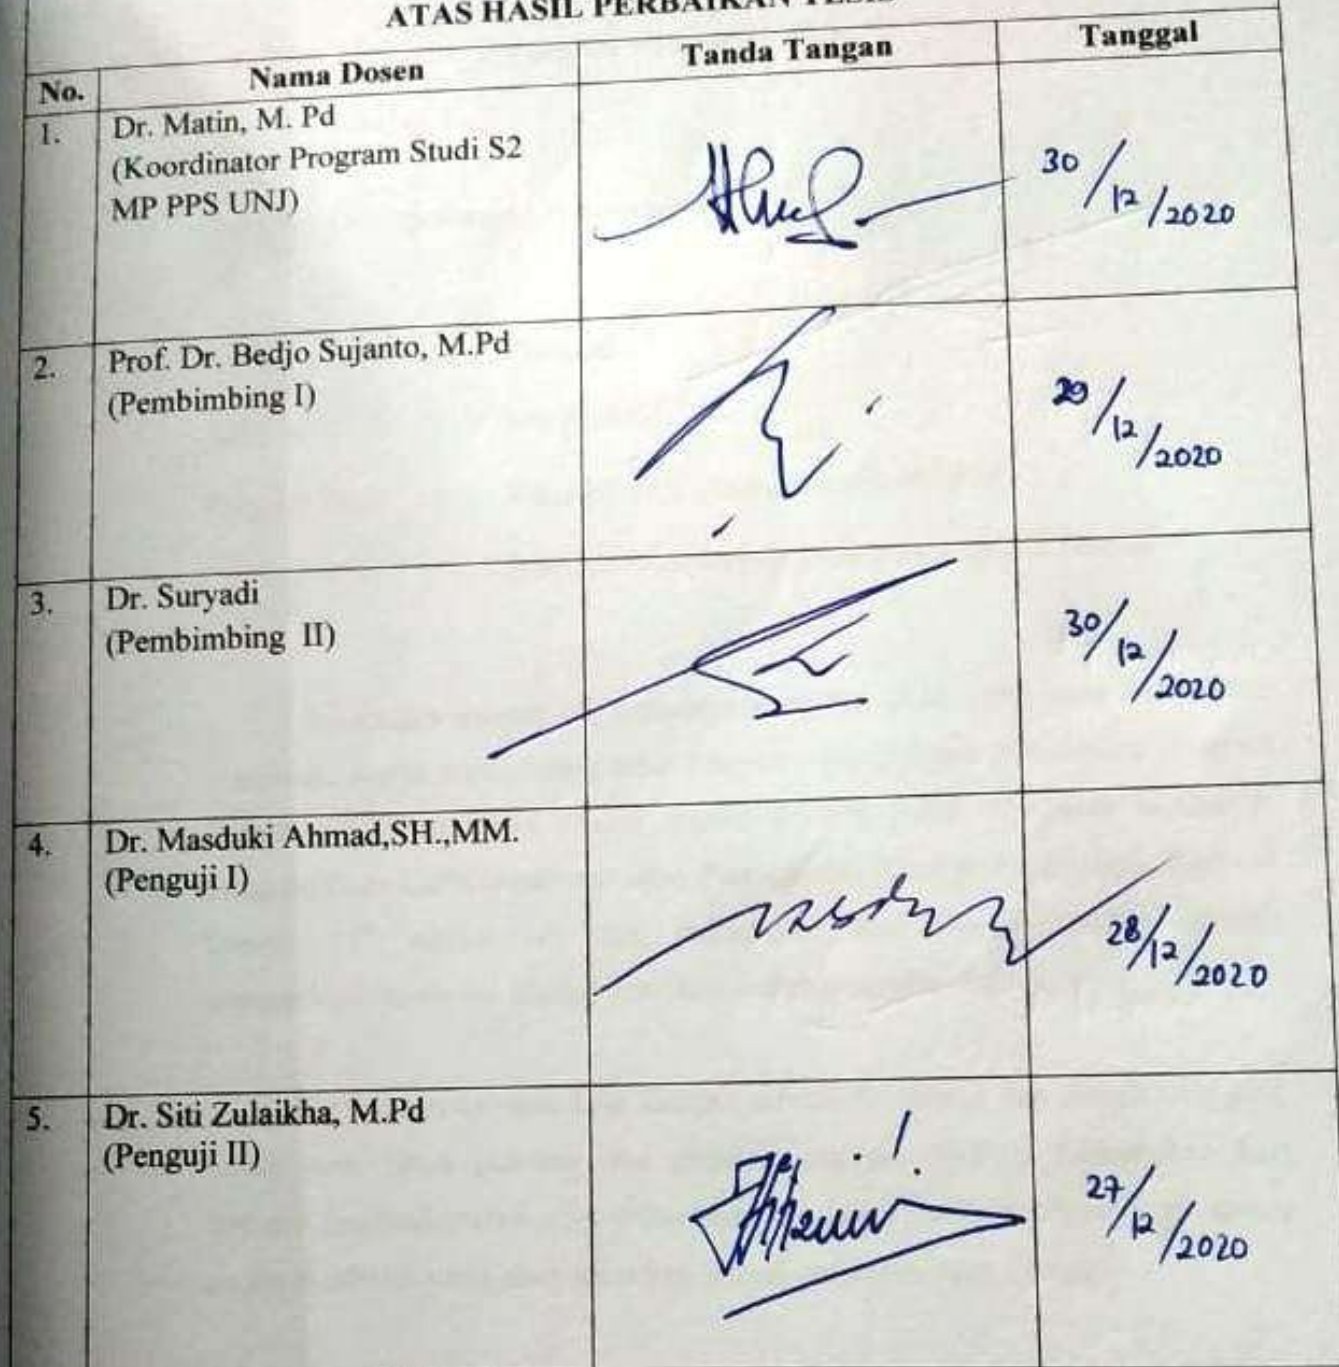 ATAS HASIL PERBAIKAN TESIS
No. Nama Dosen Tanda Tangan Tanggal
1. Dr. Matin, M. Pd
(Koordinator Program Studi S2
MP PPS UNJ)
30/12/2020
2. Prof. Dr. Bedjo Sujanto, M.Pd
(Pembimbing I)
29/12/2020
3. Dr. Suryadi
(Pembimbing II)
30/12/2020
4. Dr. Masduki Ahmad,SH.,MM.
(Penguji I)
28/12/2020
5. Dr. Siti Zulaikha, M.Pd
(Penguji II)
27/12/2020